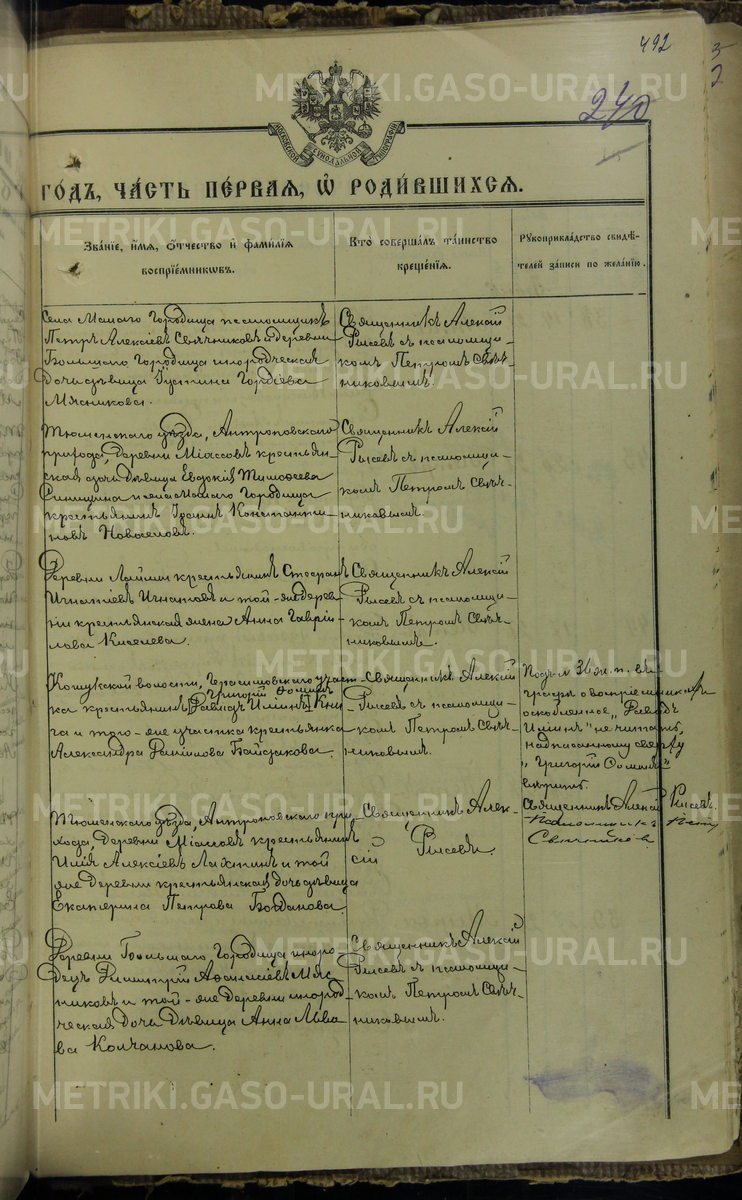 492
240
МОСКОВСКОЙ СѴНОДАЛЬНОЙ ТИПОГРАФІИ
ГО́ДЪ, ЧА́СТЬ ПЕ́РВАЯ, Ѽ РОДИ́ВШИХСЯ.
Зва́ніе, и́мя, о́тчество и҆ фами́лія воспріе́мниковъ.
Кто̀ соверша́лъ та́инство креще́нія.
Рꙋкоприкла́дство свидѣ́телей за́писи по жела́нію.
Села Малаго Городища псаломщикъ
Петръ Алексіевъ Свѣчниковъ и деревни
Большаго Городища инородческая
дочь дѣвица Іустина Гордіева
Мясникова.
Священникъ Алексій
Рысевъ съ псаломщи-
комъ Петромъ Свѣч-
никовымъ.
Тюменскаго уѣзда, Антроповскаго
прихода, деревни Міасовъ крестьян-
ская дочь дѣвица Евдокія Тимофеева
и села Малаго Городища
крестьянинъ Константи-
новъ Новоселовъ.
Священникъ Алексій
Рысевъ съ псаломщи-
комъ Петромъ Свѣч-
никовымъ.
Деревни крестьянинъ
Игнатіевъ Игнатовъ и той-же дерев-
ни крестьянская жена Анна Гаврі-
лова Киселева.
Священникъ Алексій
Рысевъ съ псаломщи-
комъ Петромъ Свѣч-
никовымъ.
Кошукской волости, Герасимовскаго участ-
Григорій Ѳоминъ
ка крестьянинъ
га и того-же участка крестьянка
Александра Байдакова.
Священникъ Алексій
Рысевъ съ псаломщи-
комъ Петромъ Свѣч-
никовымъ.
Подъ № 36 ж. п. въ
графѣ о воспріемникахъ
оскобленное
не читать,
надписанному сверху
„Григорій Ѳоминъ"
вѣрить.
Священникъ Алексій Рысевъ.
Псаломщикъ Петръ
Свѣчниковъ
Тюменскаго уѣзда, Антроповскаго при-
хода, деревни Міасовъ крестьянинъ
Илія Алексіевъ Лахтинъ и той
же деревни крестьянская дочь дѣвица
Екатерина Петрова Богданова.
Священникъ Алек-
сій Рысевъ.
Деревни Большаго Городища иноро-
децъ Димитрій Аѳанасіевъ Мяс-
никовъ и той-же деревни инород-
ческая дочь дѣвица Анна Льво-
ва Колчанова.
Священникъ Алексій
Рысевъ съ псаломщи-
комъ Петромъ Свѣч-
никовымъ.
METRIKI.GASO-URAL.RU